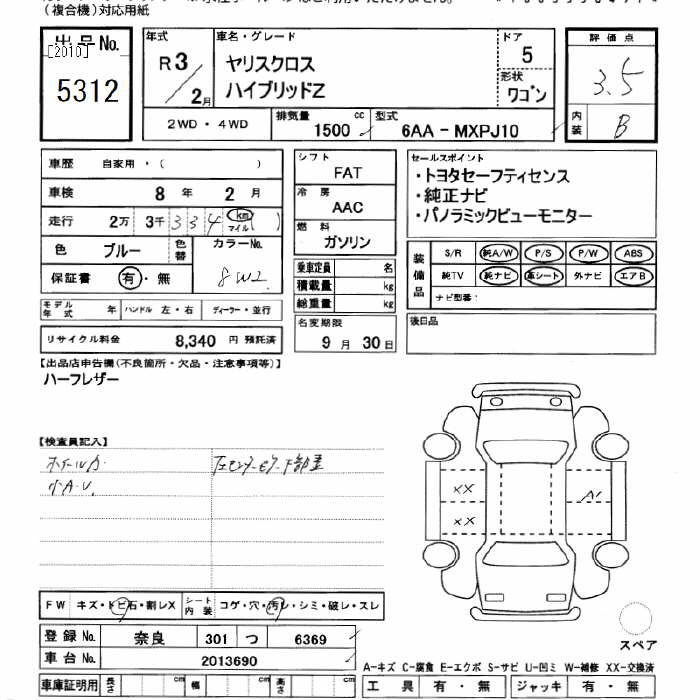 (複合機)対応用紙
出品No.
[2010]
5312
年式
R3/2月
車名・グレード
ヤリスクロス
ハイブリッドZ
ドア
5
形状
ワゴン
評価点
3.5
内装
B
2WD・4WD
排気量
1500 cc
型式
6AA-MXPJ10
車歴 自家用・( )
車検 8年 2月
走行 2万 3千 334 km マイル ( )
色 ブルー 色替 カラーNo.
8W2
保証書 有・無
モデル年式 年 ハンドル 左・右 ディーラー・並行
リサイクル料金 8,340 円 預託済
シフト
FAT
冷房
AAC
燃料
ガソリン
乗車定員 名
積載量 kg
総重量 kg
名変期限
9月 30日
セールスポイント
・トヨタセーフティセンス
・純正ナビ
・パノラミックビューモニター
装備品
S/R 純A/W P/S P/W ABS
純TV 純ナビ 革シート 外ナビ エアB
ナビ型番:
後日品
【出品店申告欄(不良箇所・欠品・注意事項等)】
ハーフレザー
【検査員記入】
ホイールカ
小A・U
XX
XX
A1
FW キズ・トビ石・割レX シート内装 コゲ・穴・汚レ・シミ・破レ・スレ
登録No. 奈良 301 つ 6369
車台No. 2013690
車庫証明用 長さ cm 幅 cm 高さ cm
スペア
A-キズ C-腐食 E-エクボ S-サビ U-凹ミ W-補修 XX-交換済
工具 有・無 ジャッキ 有・無